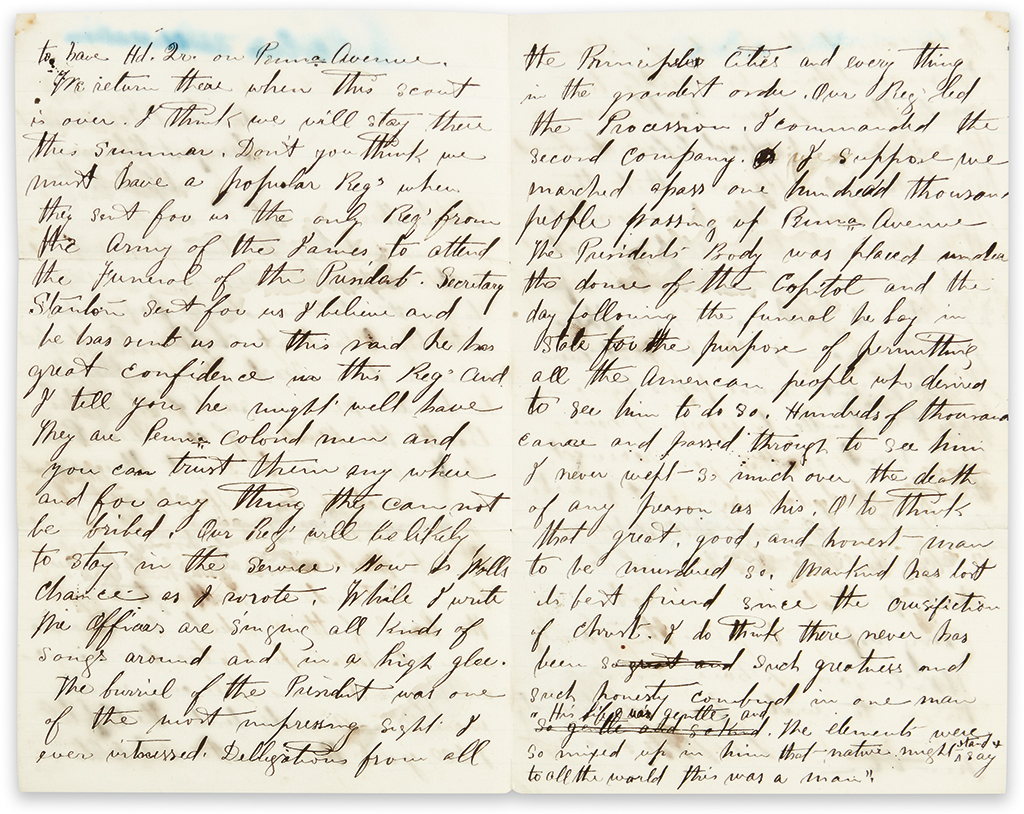 to have Hd. Qr. on Penna Avenue.
We return there when this scout
is over. I think we will stay there
this summer. Don't you think we
must have a popular Regt when
they sent for us the only Regt from
the Army of the James to attend
the Funeral of the President. Secretary
Stanton sent for us I believe and
he has sent us on this raid he has
great confidence in this Regt and
I tell you he might well have
They are Penna. Colord men and
you can trust them any where
and for any thing they can not
be bribed. Our Regt will be likely
to stay in the Service. Now is Wills
chance as I wrote. While I write
the Officers are singing all kinds of
songs around and in a high glee.
The burriel of the President was one
of the most impressing sight I
ever witnessed. Delligations from all
the Principle Cities and every thing
in the grandest order. Our Regt led
the Procession. I commanded the
second company. I suppose we
marched apass one hundred thousand
people passing up Penna Avenue
The Presidents Body was placed under
the dome of the Capitol and the
day following the funeral he lay in
State for the purpose of permitting
all the American people who desired
to see him to do so. Hundreds of thousand
came and passed through to see him
I never wept so much over the death
of any person as his. O' to think
that great, good, and honest man
to be murdred so. Mankind has lost
its best friend since the crusifiction
of Christ. I do think there never has
been so great and such greatness and
such honesty combined in one man
"His life was gentle, and
so gentle and so kind. The elements were
so mixed up in him that nature might stand &
say
to all the world this was a man".